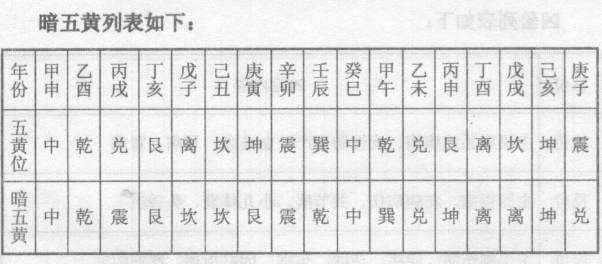 暗五黄列表如下：
年份 甲申 乙酉 丙戌 丁亥 戊子 己丑 庚寅 辛卯 壬辰 癸巳 甲午 乙未 丙申 丁酉 戊戌 己亥 庚子
五黄位 中 乾 兑 艮 离 坎 坤 震 巽 中 乾 兑 艮 离 坎 坤 震
暗五黄 中 乾 震 艮 坎 坎 艮 震 乾 中 巽 兑 坤 离 离 坤 兑